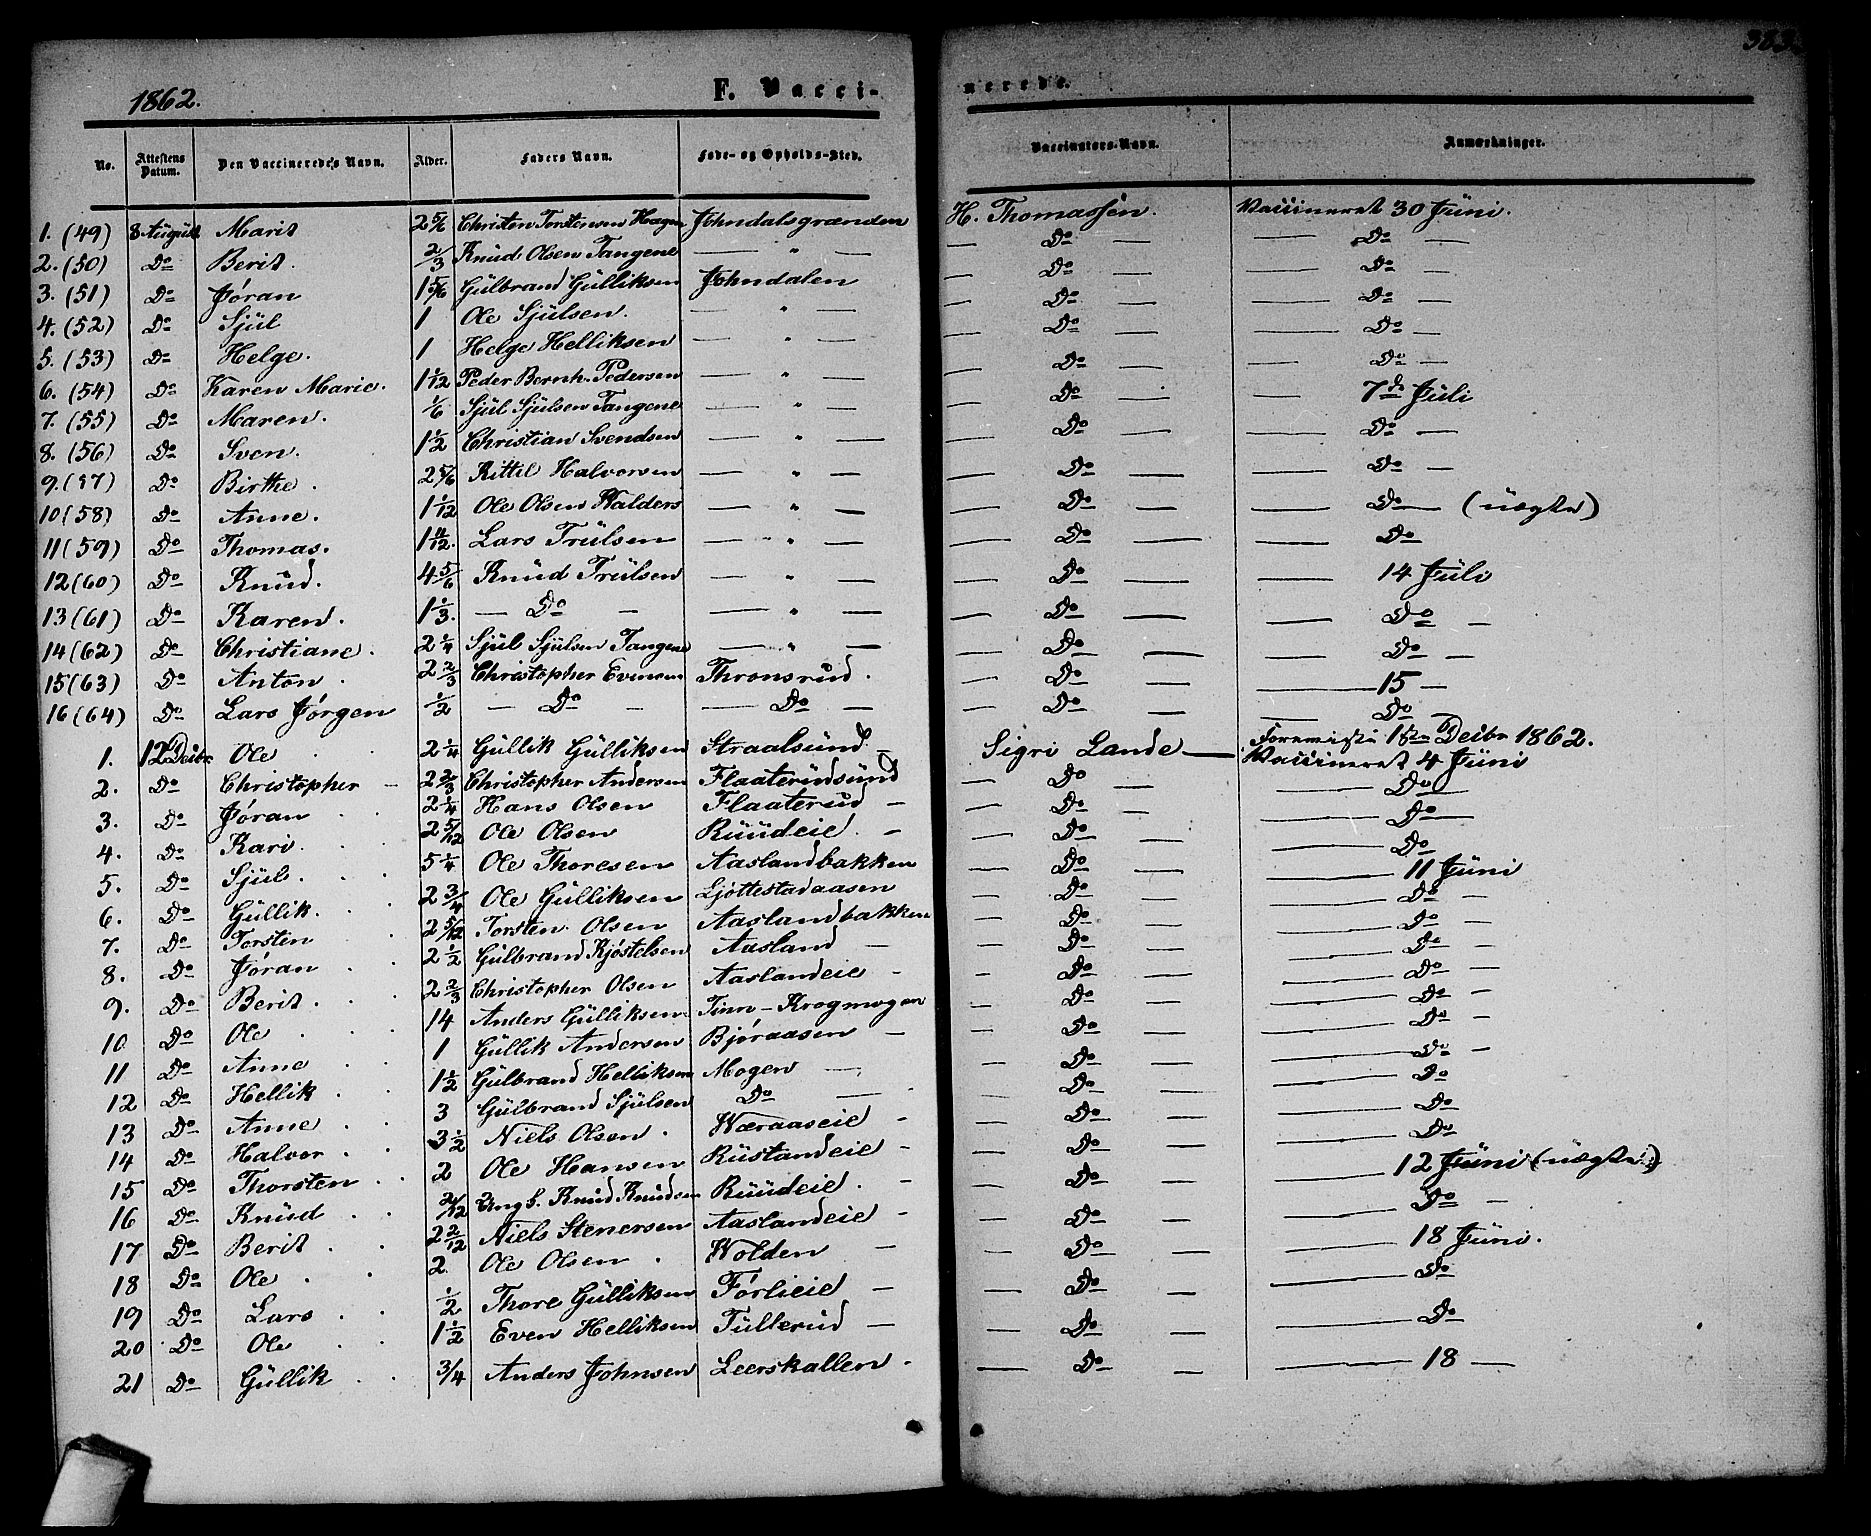 383.
1862. F. Vaccinerede.
No. Attestens Datum. Den Vaccineredes Navn. Alder. Faders Navn. Føde- og Opholds-Sted. Vaccinators-Navn. Anmærkninger.
1. (49) 8 August Marit 2 5/6 Christen Torstensen Hagen Johndalsgrænden H. Thomassen. Vaccineret 30 Juni.
2. (50) Do Berit. 2/3 Knud Olsen Tangene — " — — Do — — Do —
3. (51) Do Jøran 1 5/6 Gulbrand Gulliksen Johndalen — Do — — Do —
4. (52) Do Sjul 1 Ole Sjulsen. — " — — Do — — Do —
5. (53) Do Helge. 1 Helge Helliksen — " — — Do — — Do —
6. (54) Do Karen Marie. 1 1/12 Peder Bernh. Pedersen — " — — Do — — Do —
7. (55) Do Maren. 1/6 Sjul Sjulsen Tangene — " — — Do — — 7de Juli
8. (56) Do Sven. 1 1/2 Christian Svendsen — " — — Do — — Do —
9. (57) Do Birthe. 2 5/6 Kittil Halvorsen — " — — Do — — Do —
10 (58) Do Anne. 1 1/12 Ole Olsen Walders — " — — Do — — Do — (uægte)
11 (59) Do Thomas. 1 11/12. Lars Trulsen — " — — Do — — Do
12 (60) Do Knud. 4 5/6 Knud Trulsen — " — — Do — — 14 Juli
13 (61) Do Karen. 1 1/3. — Do — — " — — Do — — Do —
14 (62) Do Christiane. 2 1/4 Sjul Sjulsen Tangene — " — — Do — — Do —
15 (63) Do Anton. 2 2/3 Christopher Evensen Thronsrud. — Do — — 15 —
16 (64) Do Lars Jørgen 1/2 — Do — — Do — — Do — — Do
1. 12 Decbr. Ole 2 1/4 Gullik Gulliksen Straalsund. — Sigri Lande — 12te Decbr 1862. Vaccineret 4 Juni
2. Do Christopher — 2 2/3 Christopher Andersen Flaaterudsund — Do — — Do —
3. Do Jøran 2 1/4 Hans Olsen Flaaterud — — Do — — Do —
4. Do Kari. 2 5/12 Ole Olsen Ruudeie. — — Do — — Do
5. Do Sjul. 5 1/4 Ole Thoresen Aaslandbakken — Do — — 11 Juni
6. Do Gullik. 2 3/4 Ole Gulliksen Ljøttestadaasen — Do — — Do —
7. Do Torsten 2 5/12 Torsten Olsen Aaslandbakken — Do — — Do —
8. Do Jøran 2 1/2 Gulbrand Kjøstelsen Aasland — — Do — — Do —
9. Do Berit. 2 2/3 Christopher Olsen Aaslandeie — — Do — — Do —
10 Do Ole 14 Anders Gulliksen Tinn-Krogmogen — Do — — Do —
11 Do Anne 1 Gullik Andersen Bjøraasen — — Do — — Do —
12 Do Hellik 1 1/2 Gulbrand Helliksen Mogen — — Do — — Do —
13 Do Anne 3 Gulbrand Sjulsen Do — — Do — — Do
14 Do Halvor 3 1/2 Niels Olsen. Wæraaseie — — Do — — Do
15 Do Thorsten 2 Ole Hansen Rustandeie — — Do — — Do
16 Do Knud 2/12 Ungk. Knud Knudsen Ruudeie. — — Do — — 12 Juni (uægte)
17 Do Berit. 2 2/12 Niels Stenersen Aaslandeie — — Do — — Do —
18 Do Ole 2. Ole Olsen Wolden — — Do — — 18 Juni.
19 Do Lars 1/2 Thore Gulliksen Førlieie — — Do — — Do
20 Do Ole 1 1/2 Even Helliksen Tullerud — — Do — — Do
21 Do Gullik 3/4 Anders Johnsen Leerskallen — — Do — — 18 —